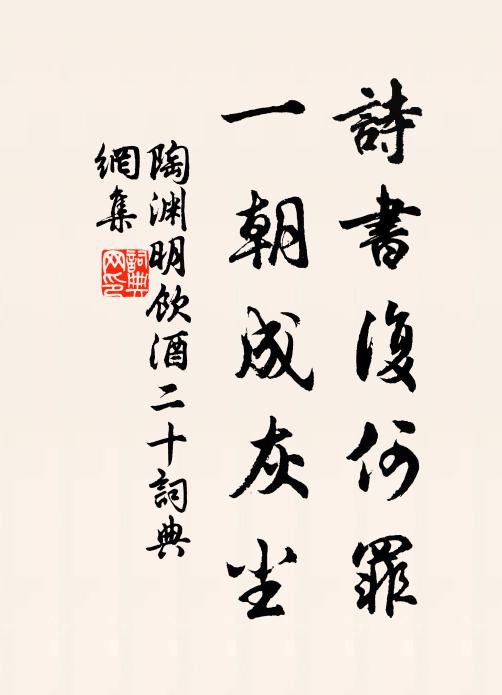 詩書復何罪
一朝成灰尘
陶渊明飲酒二十詞典
網集
詞典
网印